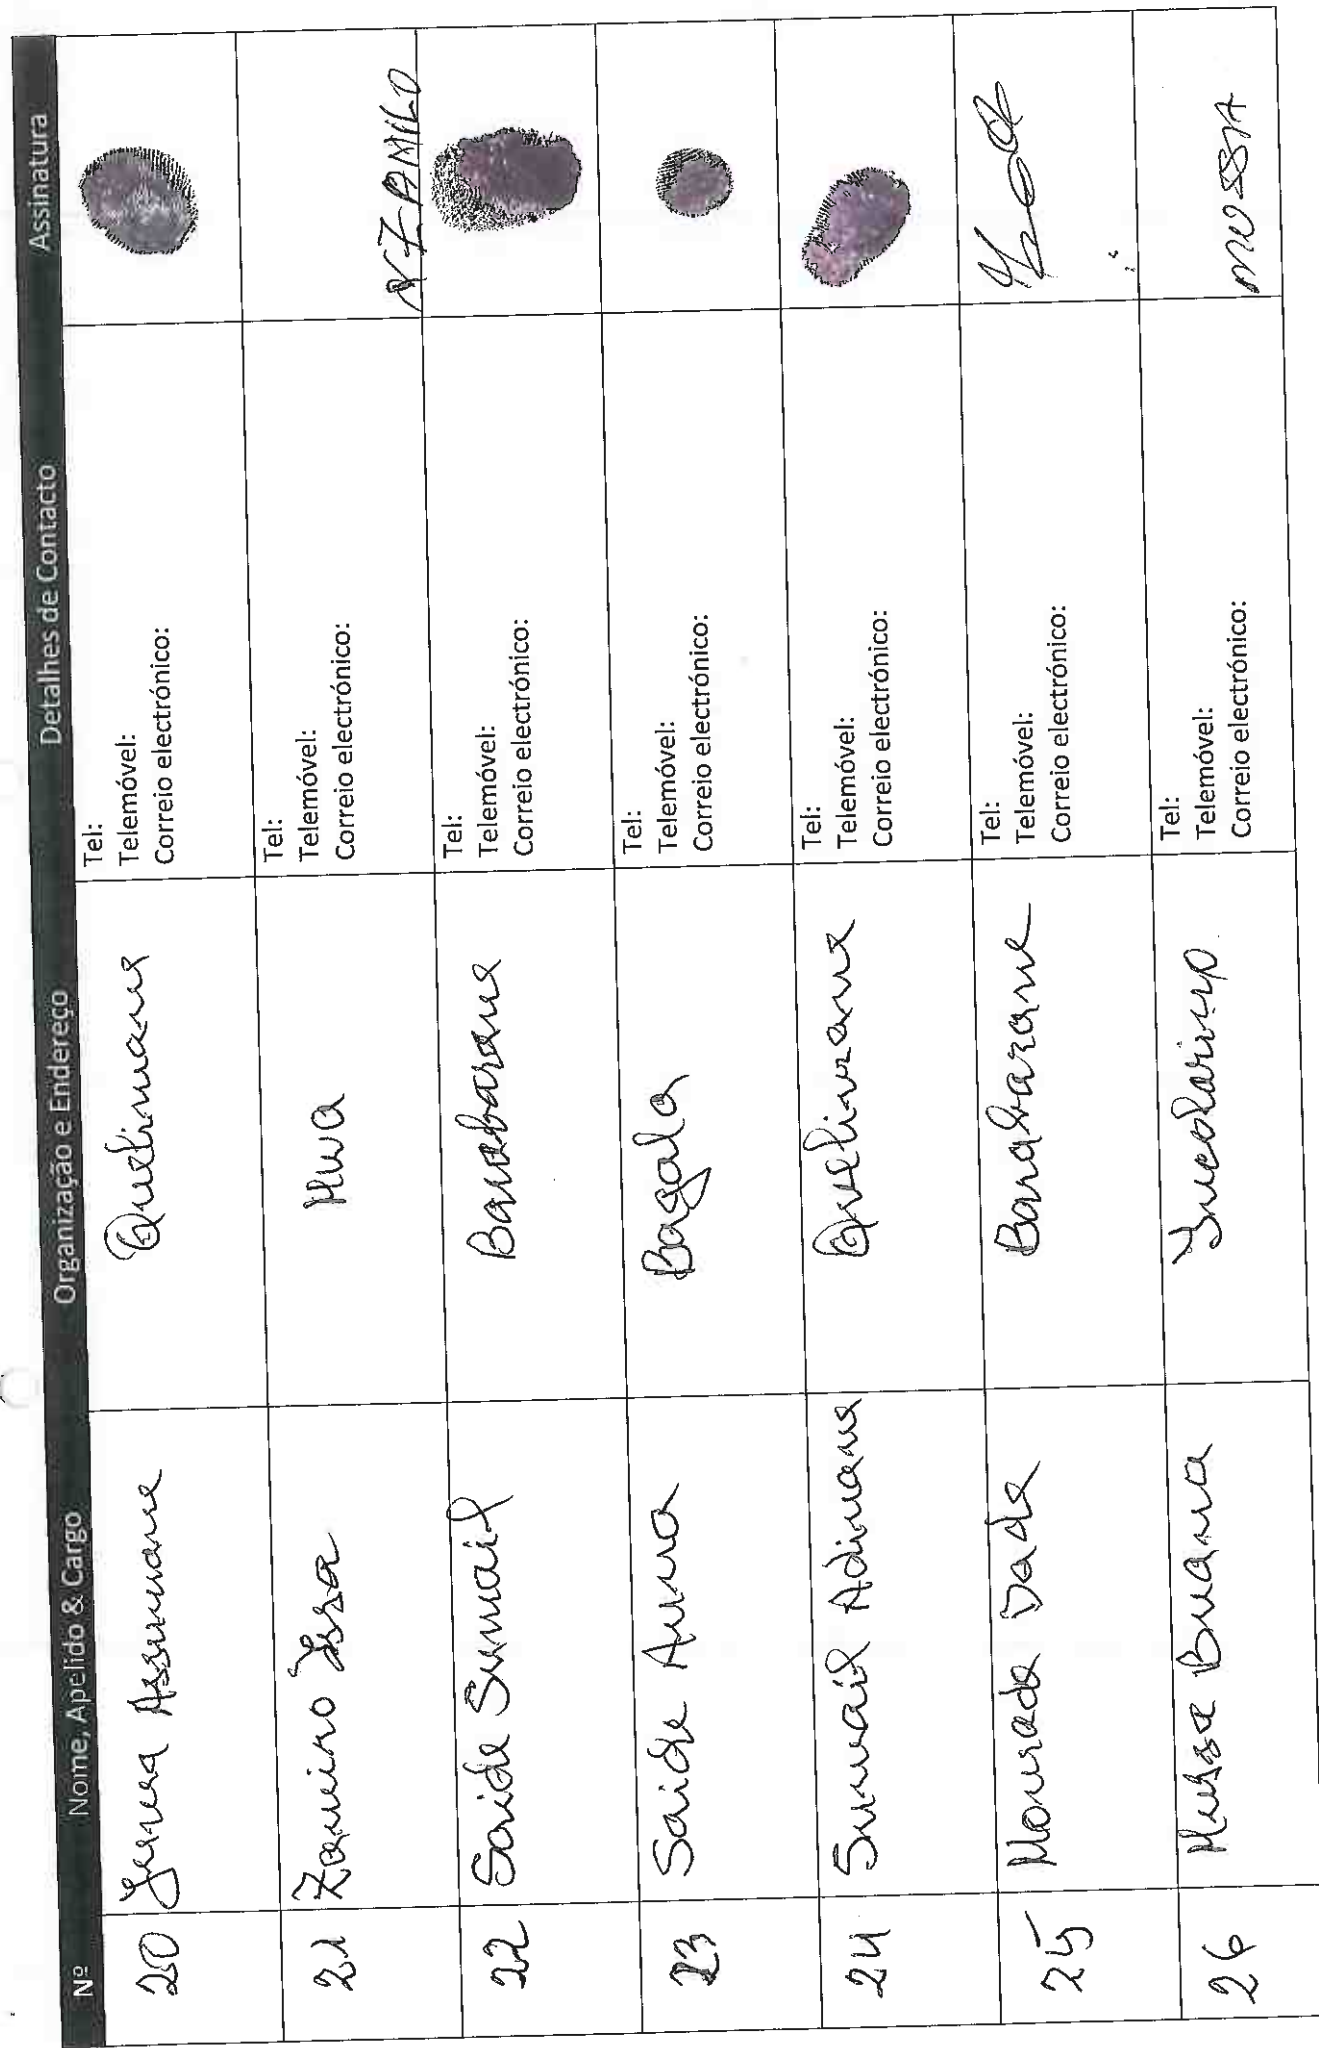 Nº Nome, Apelido & Cargo Organização e Endereço Detalhes de Contacto Assinatura
20 Assumane Quelimane Tel:
Telemóvel:
Correio electrónico:
21 Zamino Issa Mwa Tel:
Telemóvel:
Correio electrónico:
22 Saide Sumail Banabarane Tel:
Telemóvel:
Correio electrónico:
23 Saide Bagala Tel:
Telemóvel:
Correio electrónico:
24 Sumail Adimane Quelimane Tel:
Telemóvel:
Correio electrónico:
25 Mourade Dade Tel:
Telemóvel:
Correio electrónico:
26 Mussa Buana Tel:
Telemóvel:
Correio electrónico:
MUSSA